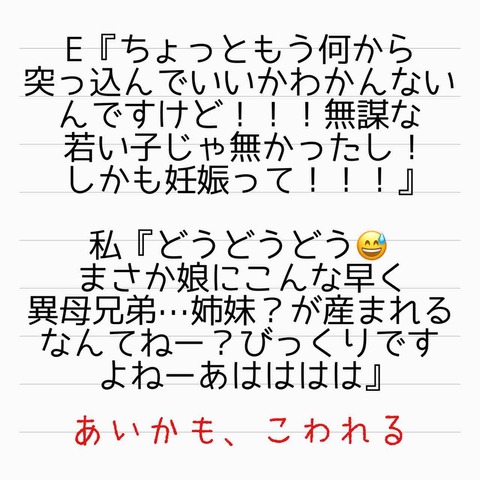 E『ちょっともう何から
突っ込んでいいかわかんない
んですけど！！！無謀な
若い子じゃ無かったし！
しかも妊娠って！！！』
私『どうどうどう😅
まさか娘にこんな早く
異母兄弟…姉妹？が産まれる
なんてねー？びっくりです
よねーあはははは』
あいかも、こわれる